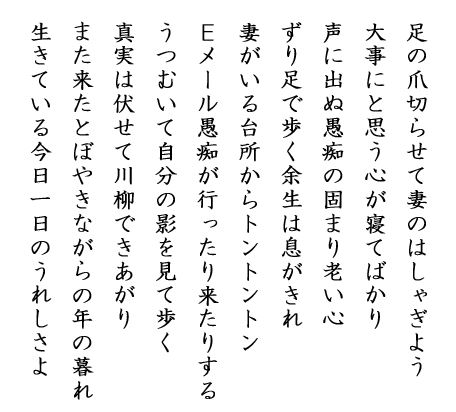 足の爪切らせて妻のはしゃぎよう
大事にと思う心が寝てばかり
声に出ぬ愚痴の固まり老い心
ずり足で歩く余生は息がきれ
妻がいる台所からトントントン
Eメール愚痴が行ったり来たりする
うつむいて自分の影を見て歩く
真実は伏せて川柳できあがり
また来たとぼやきながらの年の暮れ
生きている今日一日のうれしさよ